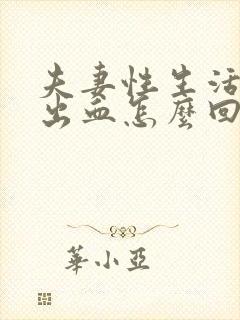 夫妻性生活
出血怎麼回
華小亞